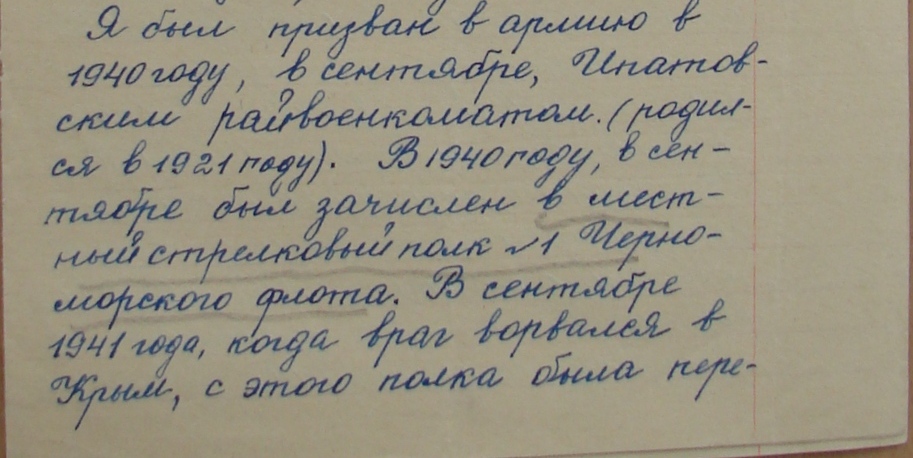 Я был призван в армию в
1940 году, в сентябре, Ипатов-
ским райвоенкоматом. (родил-
ся в 1921 году). В 1940 году, в сен-
тябре был зачислен в мест-
ный стрелковый полк №1 Черно-
морского флота. В сентябре
1941 года, когда враг ворвался в
Крым, с этого полка была пере-